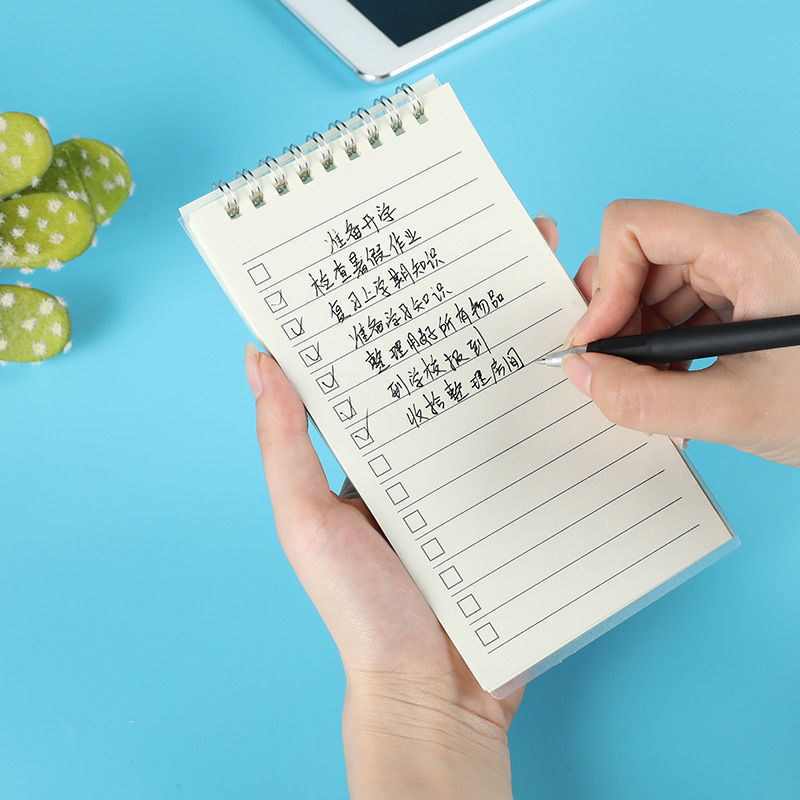 准备开学
检查暑假作业
复习上学期知识
准备学习知识
整理好所有物品
到学校报到
收拾整理房间